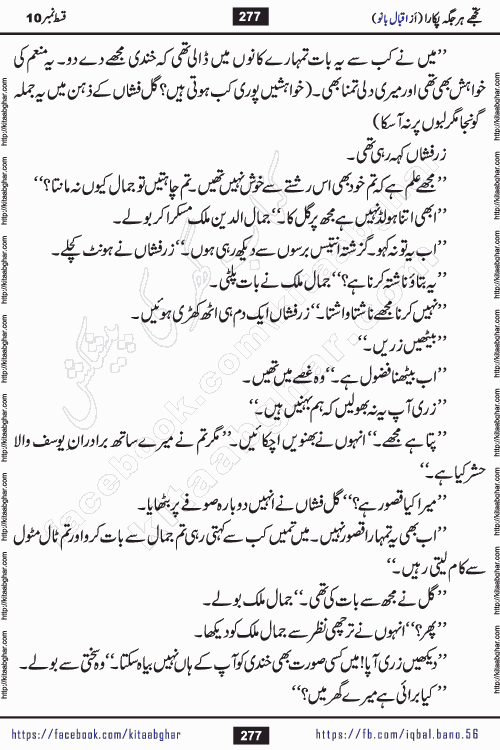 تجھے ہر جگہ پکارا (از اقبال بانو)
277
قسط نمبر 10
’’میں نے کب سے یہ بات تمہارے کانوں میں ڈالی تھی کہ خندی مجھے دے دو۔ یہ منعم کی
خواہش بھی تھی اور میری دلی تمنا بھی۔ (خواہشیں پوری کب ہوتی ہیں؟ گل فشاں کے ذہن میں یہ جملہ
گونجا مگر لبوں پر نہ آسکا)
زرفشاں کہہ رہی تھی۔
’’مجھے علم ہے کہ تم خود بھی اس رشتے سے خوش نہیں تھیں۔ تم چاہتیں تو جمال کیوں نہ مانتا؟‘‘
’’ابھی اتنا ہولڈ نہیں ہے مجھ پر گل کا۔‘‘ جمال الدین ملک مسکرا کر بولے۔
’’اب یہ تو نہ کہو۔ گزشتہ انتیس برسوں سے دیکھ رہی ہوں۔‘‘ زرفشاں نے ہونٹ کچلے۔
’’یہ بتاؤ ناشتہ کرنا ہے؟‘‘ جمال ملک نے بات پلٹی۔
’’نہیں کرنا مجھے ناشتا واشتا۔‘‘ زرفشاں ایک دم ہی اٹھ کھڑی ہوئیں۔
’’بیٹھیں زریں۔‘‘
’’اب بیٹھنا فضول ہے۔‘‘ وہ غصے میں تھیں۔
’’زری آپ یہ نہ بھولیں کہ ہم بہنیں ہیں۔‘‘
’’پتا ہے مجھے۔‘‘ انہوں نے بھنویں اچکائیں۔ ’’مگر تم نے میرے ساتھ برادران یوسف والا
حشر کیا ہے۔‘‘
’’میرا کیا قصور ہے؟‘‘ گل فشاں نے انہیں دوبارہ صوفے پر بٹھایا۔
’’اب بھی یہ تمہارا قصور نہیں۔ میں تمہیں کب سے کہتی رہی تم جمال سے بات کرو اور تم ٹال مٹول
سے کام لیتی رہیں۔‘‘
’’گل نے مجھ سے بات کی تھی۔‘‘ جمال ملک بولے۔
’’پھر؟‘‘ انہوں نے ترچھی نظر سے جمال ملک کو دیکھا۔
’’دیکھیں زری آپا! میں کسی صورت بھی خندی کو آپ کے ہاں نہیں بیاہ سکتا۔‘‘ وہ سختی سے بولے۔
’’کیا برائی ہے میرے گھر میں؟‘‘
کتاب گھر کی پیشکش
kitaabghar.com
facebook.com/kitaabghar
http://kitaabghar.com
https://facebook.com/kitaabghar
277
https://fb.com/iqbal.bano.56